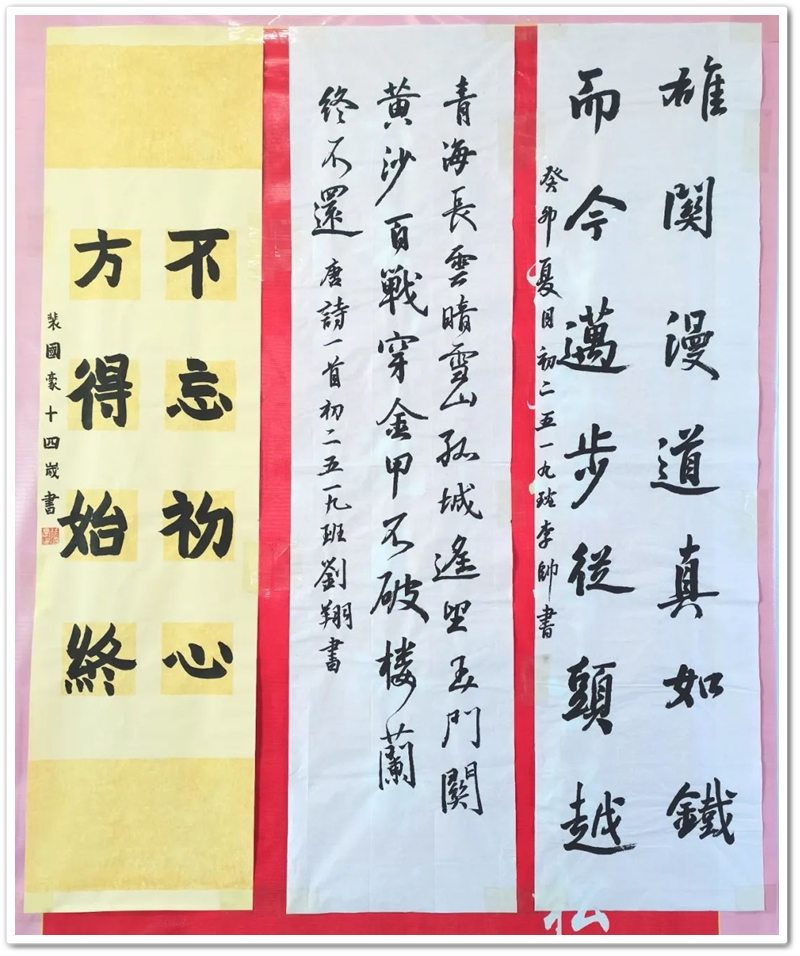 雄關漫道真如鐵
而今邁步從頭越
癸卯夏月初二五一九班李帥書
青海長雲暗雪山孤城遙望玉門關
黄沙百戰穿金甲不破楼蘭
終不還 唐詩一首初二五一九班劉翔書
不忘初心
方得始終
裴國豪十四歲書